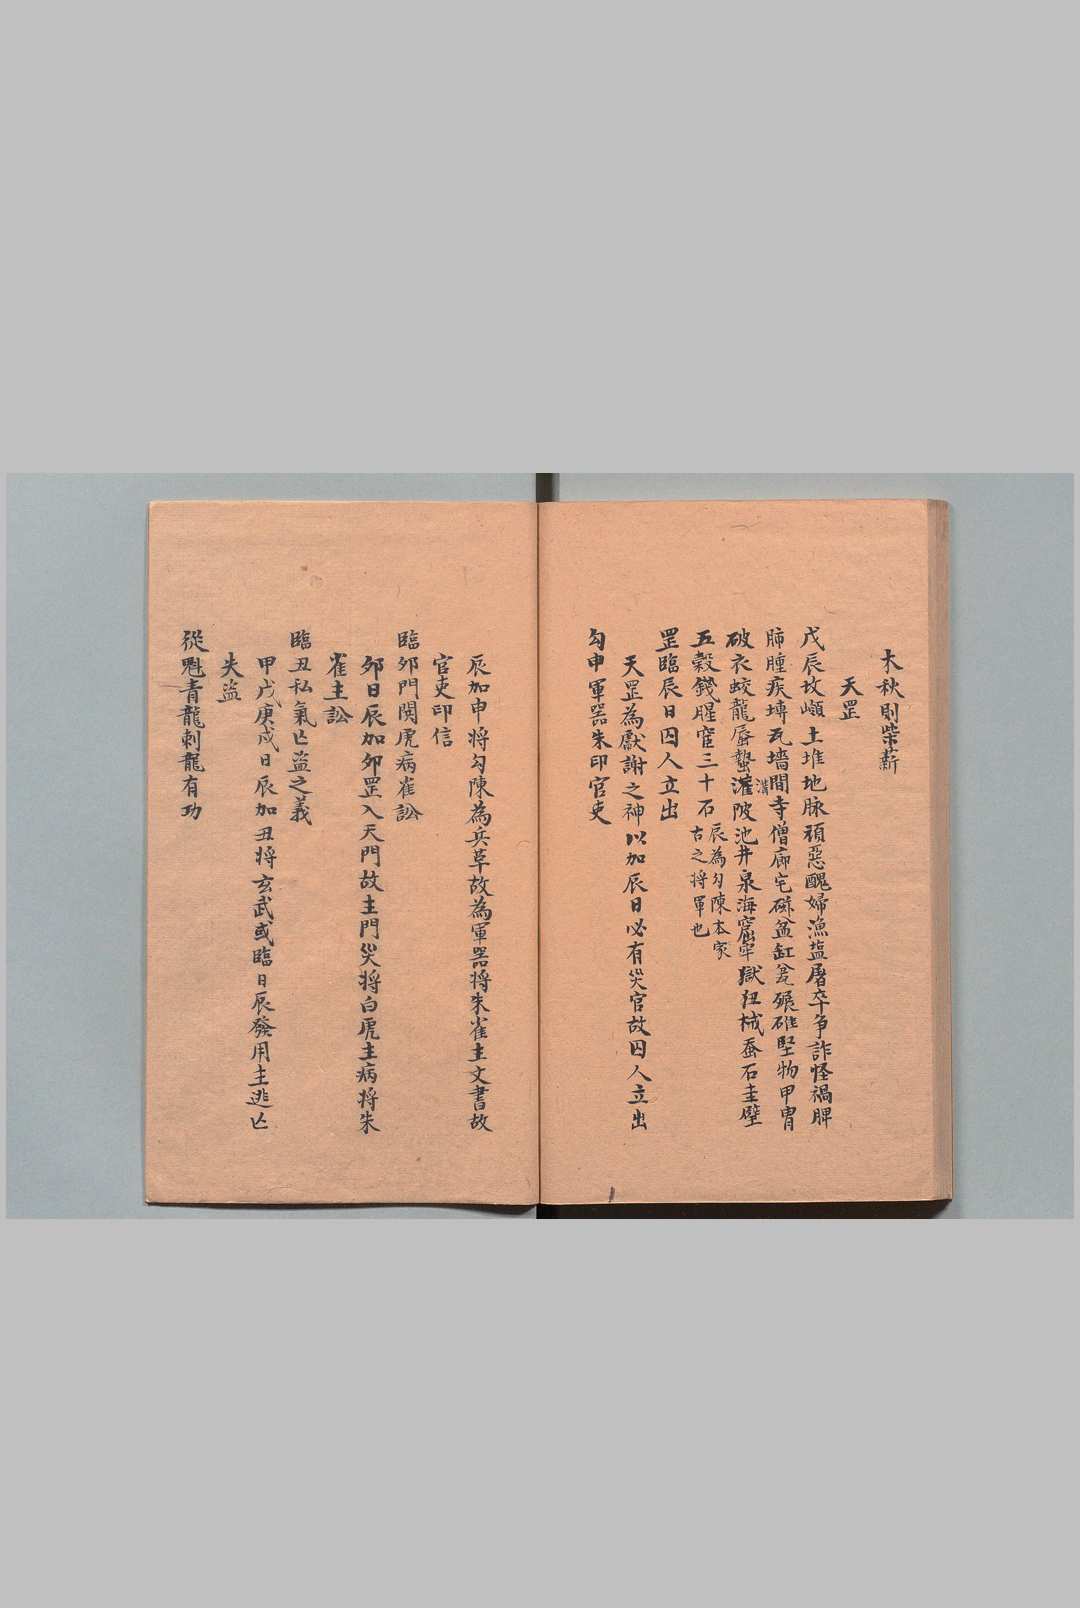 木秋則柴薪
天罡
戊辰坟巔土堆地脉頑惡醜婦漁盐屠卒争詐怪禍脾
肺腫疾塼瓦墻間寺僧廊宅磉盆缸瓮碾碓堅物甲冑
破衣蛟龍蜃蟄灌陂池井泉海窟牢獄杻械蚕石圭壁
溝
五穀錢腥窖三十石
辰為勾陳本家
古之将軍也
罡臨辰日囚人立出
天罡為獻謝之神以加辰日必有災官故囚人立出
勾申軍器朱印官吏
辰加申将勾陳為兵革故為軍器将朱雀主文書故
官吏印信
臨夘門関虎病雀訟
夘日辰加夘罡入天門故主門災将白虎主病将朱
雀主訟
臨丑私氣亡盗之義
甲戊庚戌日辰加丑将玄武或臨日辰發用主逃亡
失盗
從魁青龍刺龍有功